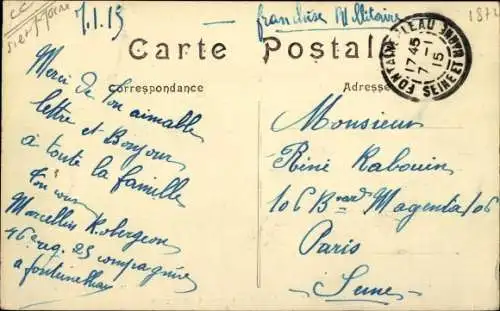 7.1.15
franchise Militaire
1877
Carte Postale
Correspondance
Adresse
FONTAINEBLEAU
17 45
7 -1
15
SEINE ET MARNE
Merci de ton aimable
lettre et Bonjour
à toute la famille
Ton
Marcellin Robergeon
46e reg. 23 compagnie
a fontainebleau
Monsieur
Réné Rabouin
106 Bard Magenta 106
Paris
Seine